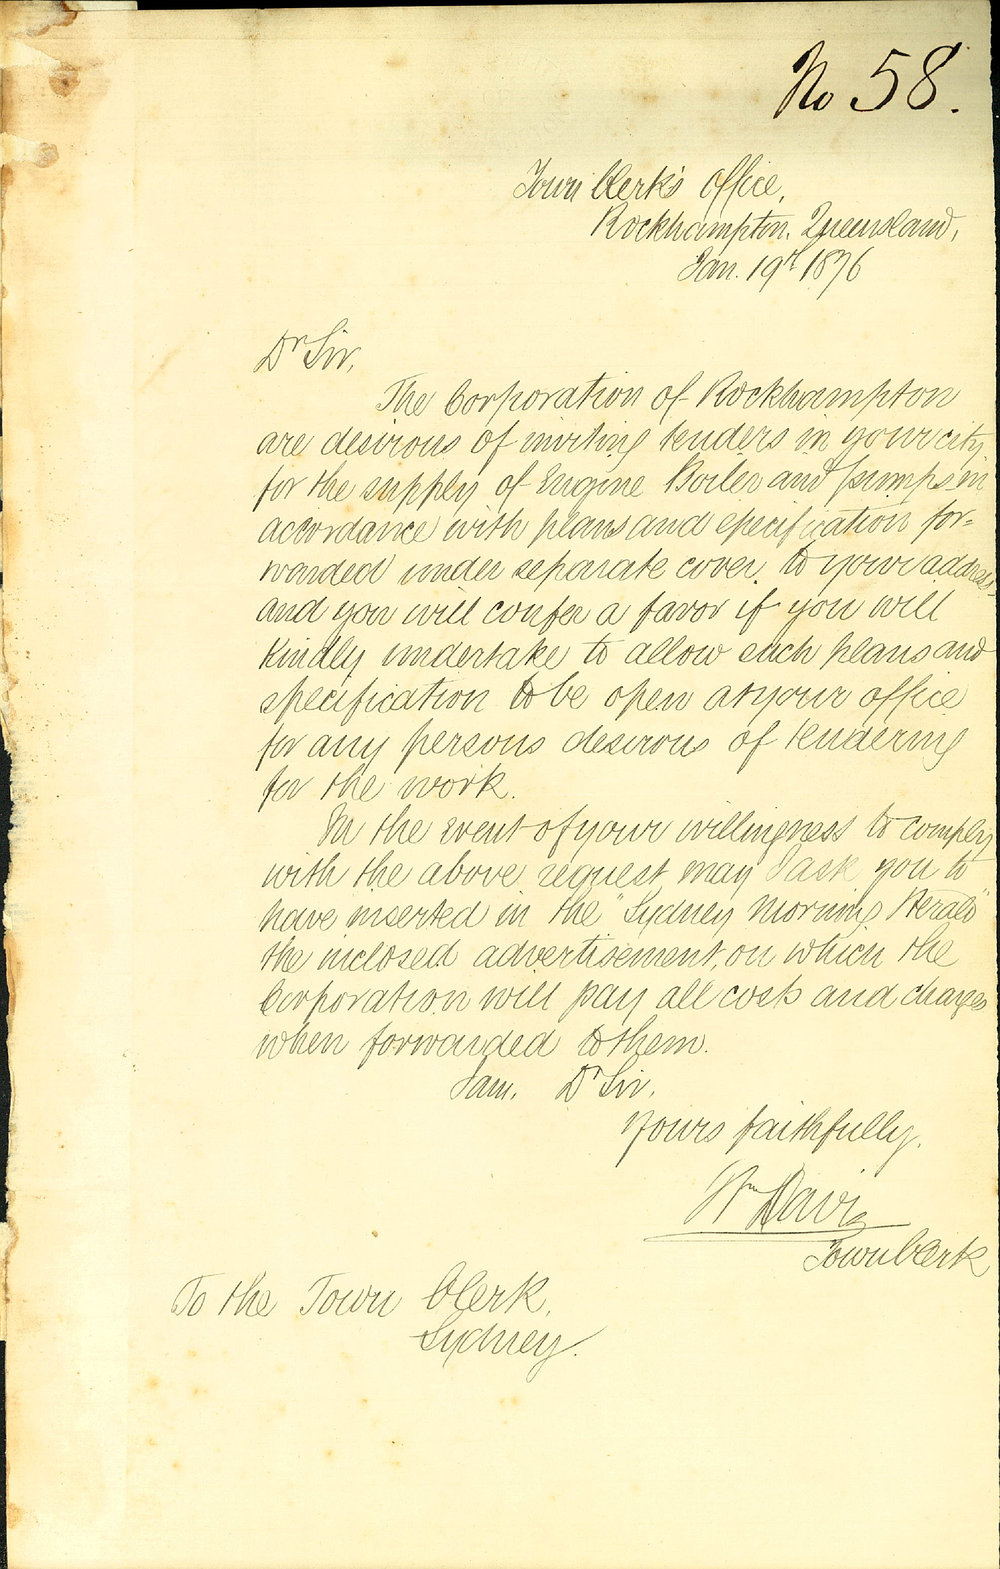 No 58.
Town Clerk's Office,
Rockhampton, Queensland,
Jan. 19th 1876
Dr Sir,
The Corporation of Rockhampton
are desirous of inviting tenders in your city
for the supply of Engine Boiler and pumps in
accordance with plans and specification for-
warded under separate cover to your address
and you will confer a favor if you will
kindly undertake to allow such plans and
specification to be open at your office
for any persons desirous of tendering
for the work.
In the event of your willingness to comply
with the above request may I ask you to
have inserted in the "Sydney Morning Herald"
the inclosed advertisement, on which the
Corporation will pay all costs and charges
when forwarded to them.
I am, Dr Sir,
Yours faithfully,
Wm Davis
Town Clerk
To the Town Clerk,
Sydney.